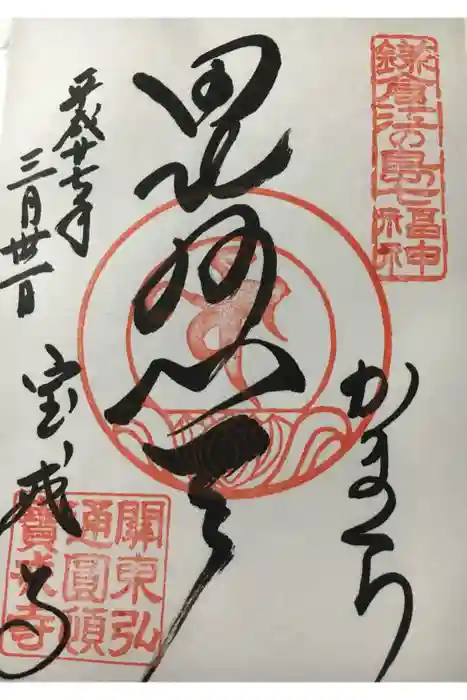 鎌倉江の島七福神
かまくら
毘沙門天
平成廿七年
三月卅一日
宝戒寺
關東弘
通圓頓
寶戒寺